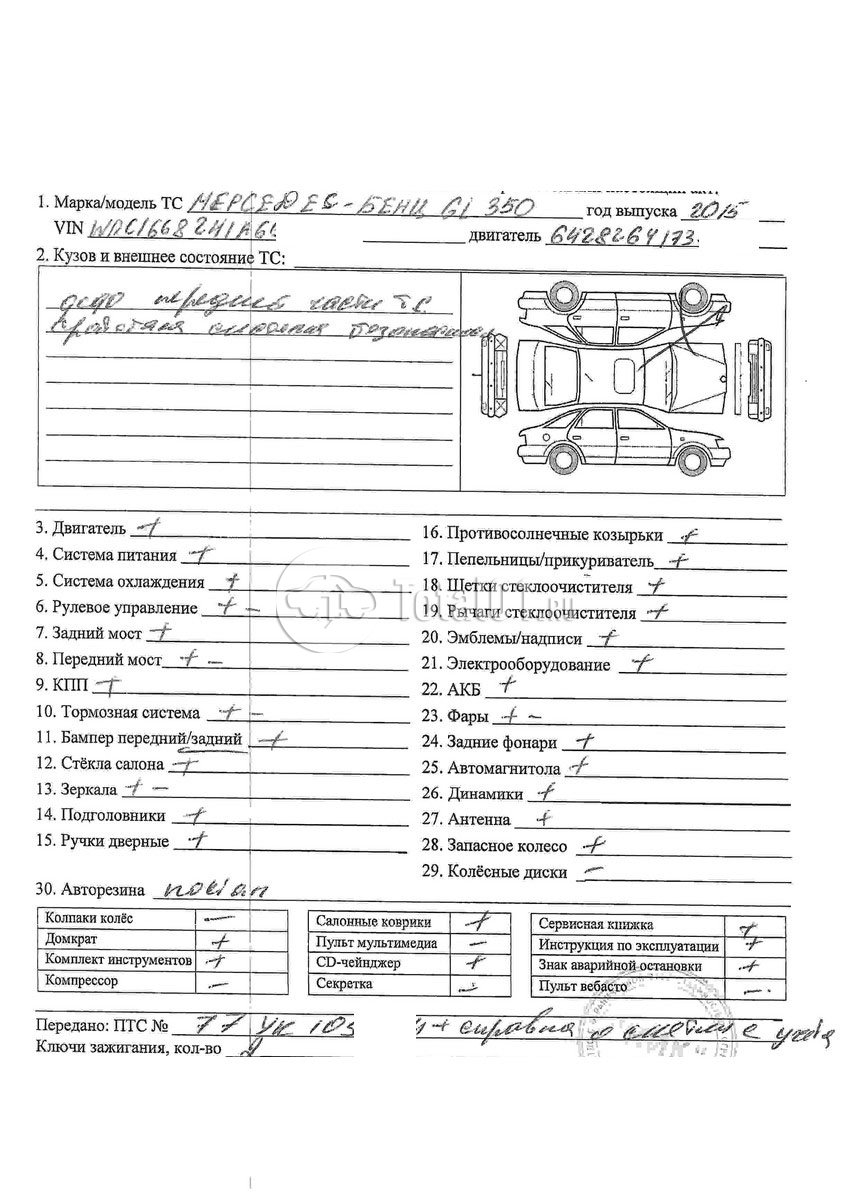 1. Марка/модель ТС МЕРСЕДЕС-БЕНЦ GL 350 год выпуска 2015
VIN WDC1668241A6 двигатель 64282641173
2. Кузов и внешнее состояние ТС:
передней части ТС.
3. Двигатель +
4. Система питания +
5. Система охлаждения +
6. Рулевое управление + -
7. Задний мост +
8. Передний мост + -
9. КПП +
10. Тормозная система + -
11. Бампер передний/задний +
12. Стёкла салона +
13. Зеркала + -
14. Подголовники +
15. Ручки дверные +
16. Противосолнечные козырьки +
17. Пепельницы/прикуриватель +
18. Щетки стеклоочистителя +
19. Рычаги стеклоочистителя +
20. Эмблемы/надписи +
21. Электрооборудование +
22. АКБ +
23. Фары + -
24. Задние фонари +
25. Автомагнитола +
26. Динамики +
27. Антенна +
28. Запасное колесо +
29. Колёсные диски -
30. Авторезина nokian
Колпаки колёс -
Домкрат +
Комплект инструментов +
Компрессор -
Салонные коврики +
Пульт мультимедиа -
CD-чейнджер +
Секретка -
Сервисная книжка +
Инструкция по эксплуатации +
Знак аварийной остановки +
Пульт вебасто -
Передано: ПТС № 77 УК 103 + справка о снятии с учёта
Ключи зажигания, кол-во 2
Total01.ru